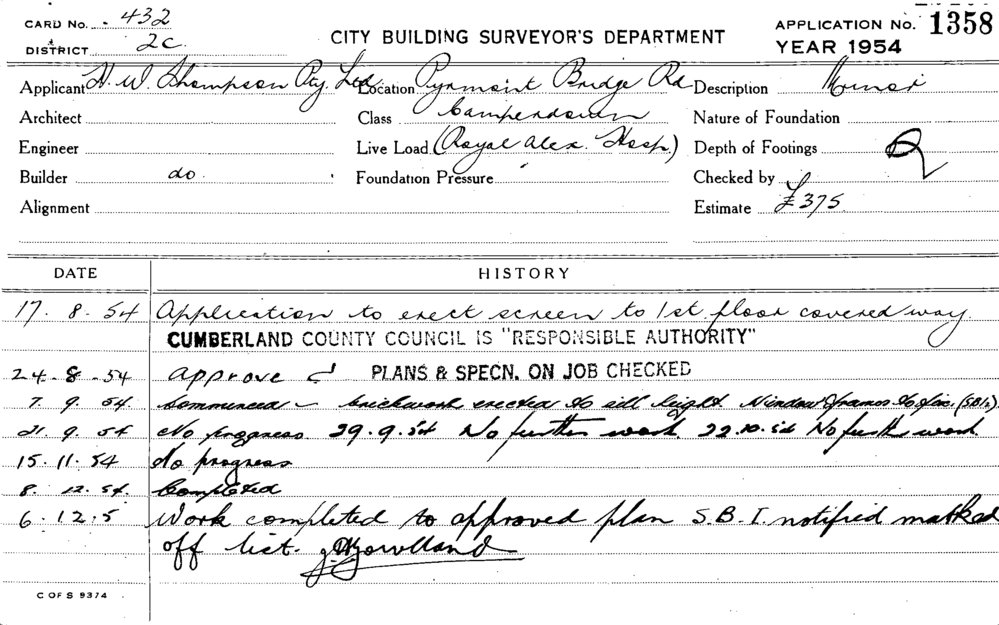 CARD No. 432
& DISTRICT 2c.
CITY BUILDING SURVEYOR'S DEPARTMENT
APPLICATION No. 1358
YEAR 1954
Applicant H. W. Thompson Pty. Ltd. Location Pyrmont Bridge Rd Description Minor
Architect Class Camperdown Nature of Foundation
Engineer Live Load (Royal Alex. Hosp.) Depth of Footings
Builder do. Foundation Pressure Checked by
Alignment Estimate £375
DATE HISTORY
17. 8. 54 Application to erect screen to 1st floor covered way.
CUMBERLAND COUNTY COUNCIL IS "RESPONSIBLE AUTHORITY"
24. 8. 54 Approve PLANS & SPECN. ON JOB CHECKED
7. 9. 54. Commenced – brickwork erected to sill height. Window frames
21. 9. 54 No progress. 29.9.54 No further work 22.10.54 No further work
15. 11. 54 No progress
8. 12. 54. Completed
6. 12. 5 Work completed to approved plan S.B.I. notified marked
off list.
C OF S 9374